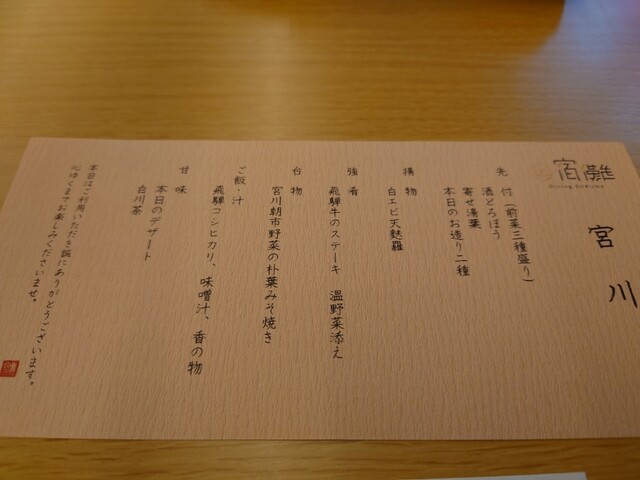 宮川
先付(前菜三種盛り)
酒どろぼう
寄せ湯葉
本日のお造り二種
揚物
白エビ天麩羅
強肴
飛騨牛のステーキ 温野菜添え
台物
宮川朝市野菜の朴葉みそ焼き
ご飯・汁
飛騨コシヒカリ、味噌汁、香の物
甘味
本日のデザート
白川茶
本日はご利用いただき誠にありがとうございます。
心ゆくまでお楽しみくださいませ。